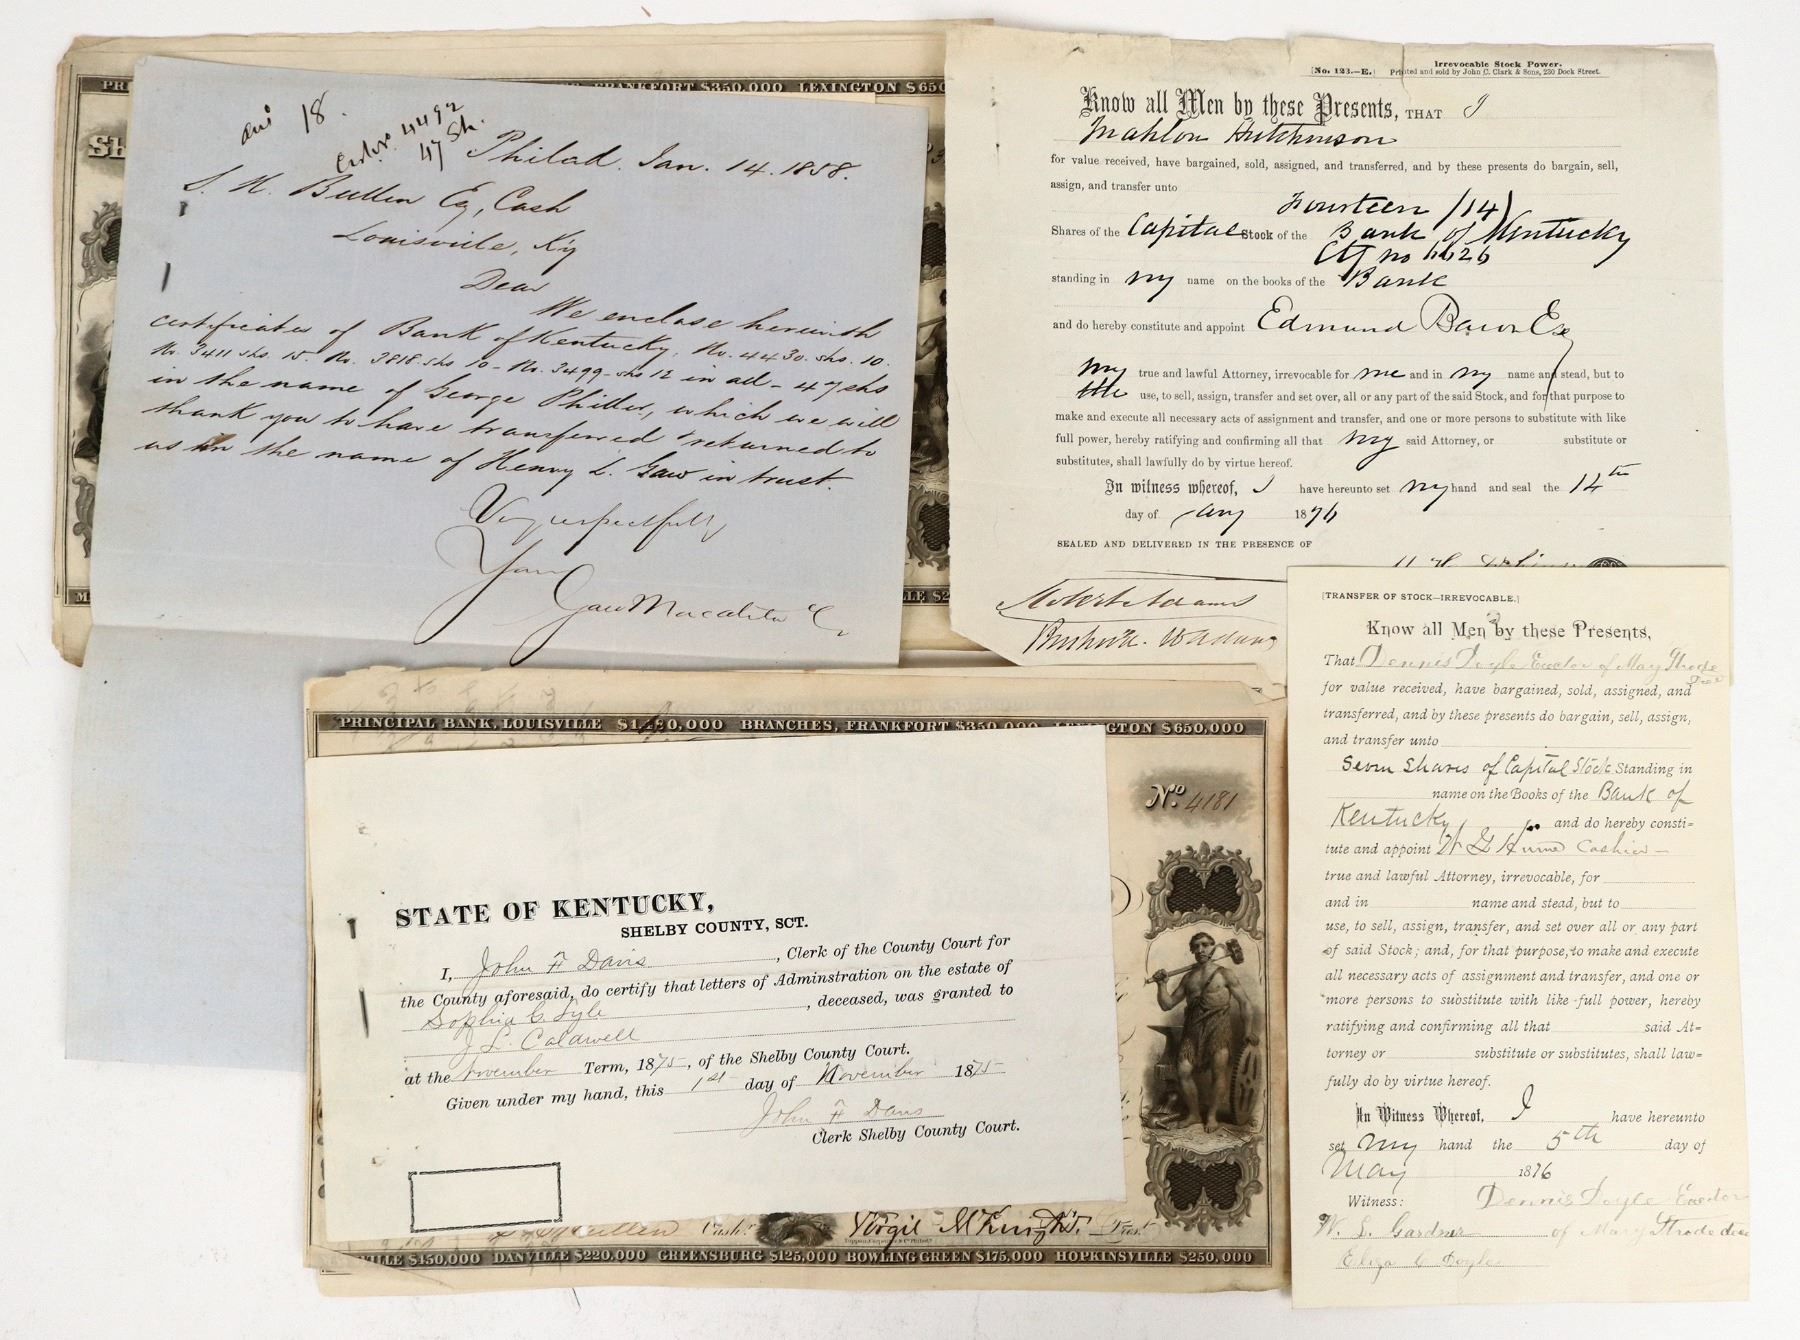 FRANKFORT $350,000 LEXINGTON $650
ans 18.
4492
47 Sh.
Philad. Jan. 14. 1858.
S. H. Bullen Esq, Cash
Louisville, Ky
Dear
We enclose herewith
certificates of Bank of Kentucky, No. 4430. shs. 10.
No. 3411 shs. 15. No. 3818. shs 10 - No. 3499 - shs 12 in all - 47 shs
in the name of George Philler, which we will
thank you to have transferred & returned to
us in the name of Henry L. Gaw in trust.
Very respectfully
Yours
Gaw Macalester & Co
[No. 123.—E.]
Irrevocable Stock Power.
Printed and sold by John C. Clark & Sons, 230 Dock Street.
Know all Men by these Presents, THAT I
Mahlon Hutchinson
for value received, have bargained, sold, assigned, and transferred, and by these presents do bargain, sell,
assign, and transfer unto
Fourteen (14)
Shares of the Capital Stock of the Bank of Kentucky
Ctf no 6626
standing in my name on the books of the Bank
and do hereby constitute and appoint Edmund Bacon Esq
my true and lawful Attorney, irrevocable for me and in my name and stead, but to
use, to sell, assign, transfer and set over, all or any part of the said Stock, and for that purpose to
make and execute all necessary acts of assignment and transfer, and one or more persons to substitute with like
full power, hereby ratifying and confirming all that my said Attorney, or substitute or
substitutes, shall lawfully do by virtue hereof.
In witness whereof, I have hereunto set my hand and seal the 14th
day of 1876
SEALED AND DELIVERED IN THE PRESENCE OF
Robert Adams
PRINCIPAL BANK, LOUISVILLE $1, 0,000 BRANCHES, FRANKFORT $350,000 LEXINGTON $650,000
No. 4181
STATE OF KENTUCKY,
SHELBY COUNTY, SCT.
I, John F Davis, Clerk of the County Court for
the County aforesaid, do certify that letters of Adminstration on the estate of
Sophia C. Lyle, deceased, was granted to
J. L. Caldwell
at the November Term, 1875, of the Shelby County Court.
Given under my hand, this 1st day of November 1875
John F Davis
Clerk Shelby County Court.
Cash. Virgil McKnight Prest.
VILLE $450,000 DANVILLE $220,000 GREENSBURG $125,000 BOWLING GREEN $175,000 HOPKINSVILLE $250,000
[TRANSFER OF STOCK—IRREVOCABLE.]
Know all Men by these Presents,
That Dennis Doyle Exector of May Throde
for value received, have bargained, sold, assigned, and
transferred, and by these presents do bargain, sell, assign,
and transfer unto
Seven Shares of Capital Stock Standing in
name on the Books of the Bank of
Kentucky and do hereby consti=
tute and appoint W G Hume Cashier
true and lawful Attorney, irrevocable, for
and in name and stead, but to
use, to sell, assign, transfer, and set over all or any part
of said Stock; and, for that purpose, to make and execute
all necessary acts of assignment and transfer, and one or
more persons to substitute with like full power, hereby
ratifying and confirming all that said At=
torney or substitute or substitutes, shall law=
fully do by virtue hereof.
In Witness Whereof, I have hereunto
set my hand the 5th day of
May 1876
Witness: Dennis Doyle Exector
W. L. Gardner of Mary Throde
Eliza C Doyle